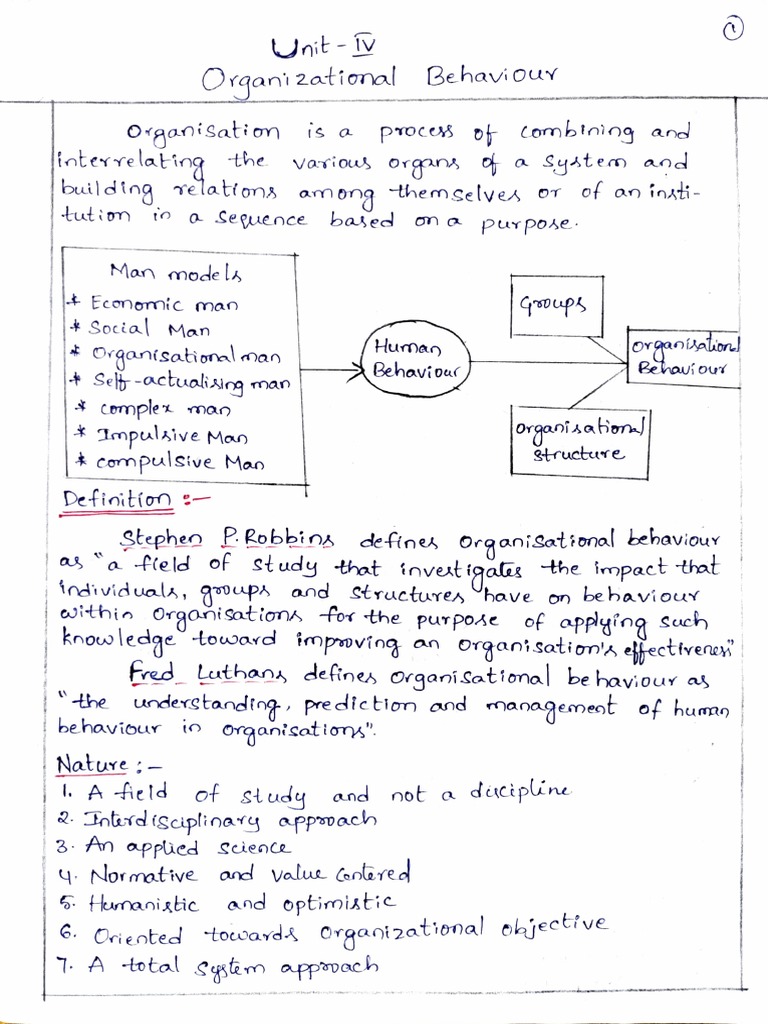 1
Unit - IV
Organizational Behaviour
Organisation is a process of combining and
interrelating the various organs of a system and
building relations among themselves or of an insti-
tution in a sequence based on a purpose.
Man models
* Economic man
* Social Man
* Organisational man
* Self-actualising man
* complex man
* Impulsive Man
* compulsive Man
Human
Behaviour
Groups
Organisational
Behaviour
Organisational
structure
Definition :-
Stephen P. Robbins defines organisational behaviour
as "a field of study that investigates the impact that
individuals, groups and structures have on behaviour
within organisations for the purpose of applying such
knowledge toward improving an organisation's effectiveness"
Fred Luthans defines organisational behaviour as
"the understanding, prediction and management of human
behaviour in organisations".
Nature :-
1. A field of study and not a discipline
2. Interdisciplinary approach
3. An applied science
4. Normative and value centered
5. Humanistic and optimistic
6. Oriented towards organizational objective
7. A total system approach